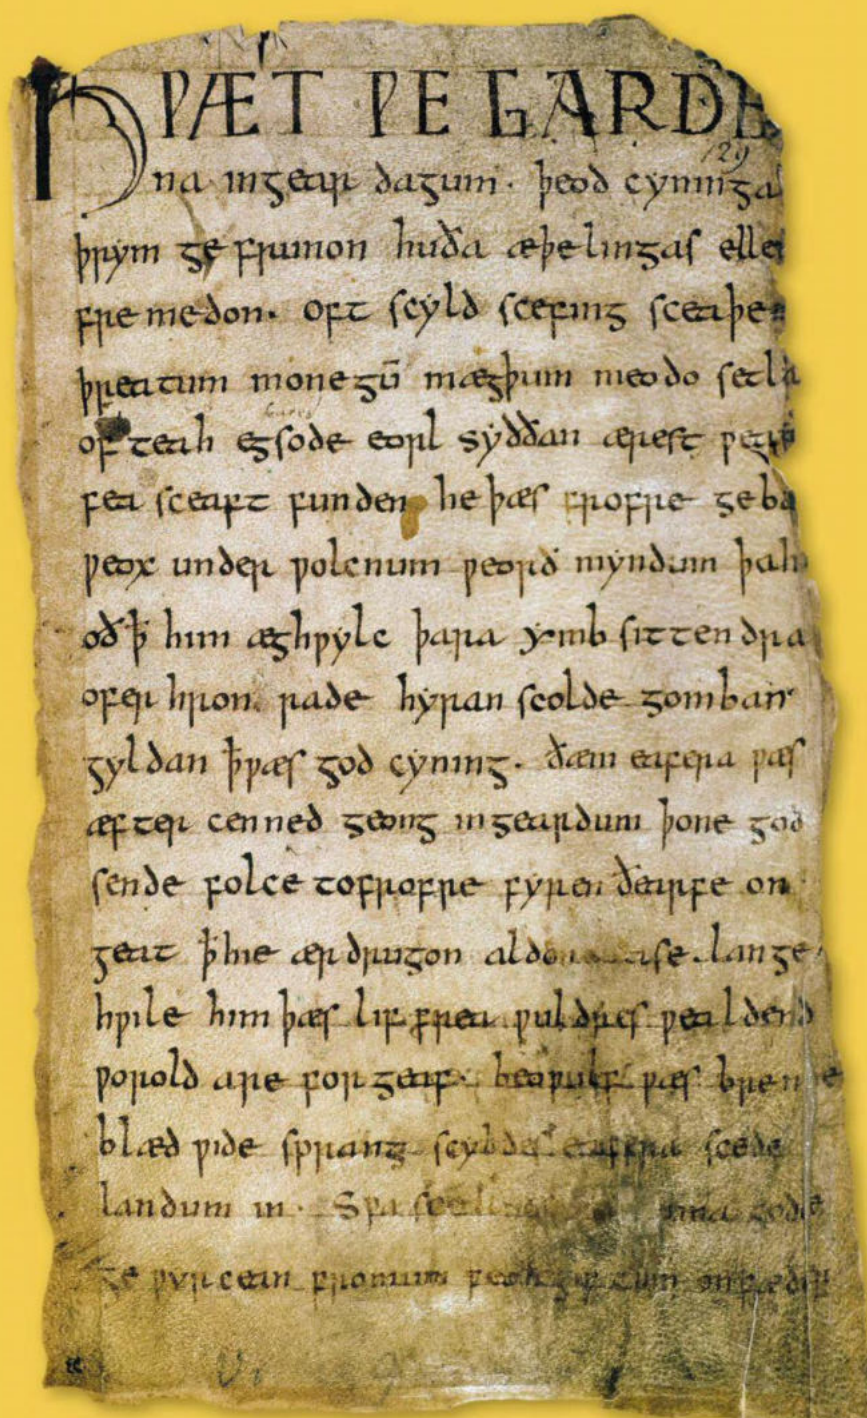 HǷÆT ǷE GARDE
129
na ingear dagum. þeod cyninga
þrym ge frunon huða æþelingas elle
fremedon. oft scyld scefing sceaþe
þreatum monegū mægþum meodo setla
of teah egsode eorl syððan ærest ƿe
fea sceaft funden he þæs frofre geba
ƿeox under ƿolcnum ƿeorð myndum þah
oð þ̄ him æghƿylc þara ymb sittendra
ofer hron rade hyran scolde gomban
gyldan þ̄ ƿæs god cyning. ðæm eafera ƿæs
æfter cenned geong in geardum þone god
sende folce tofrofre fyren ðearfe on
geat þ̄ hie ær drugon aldor ase. lange
hƿile him þæs lif frea ƿuldres ƿealdend
ƿorold are forgeaf. beoƿulf ƿæs breme
blæd ƿide sprang scyldes eafera scede
landum in. Sƿa
ge ƿyrcean fromum